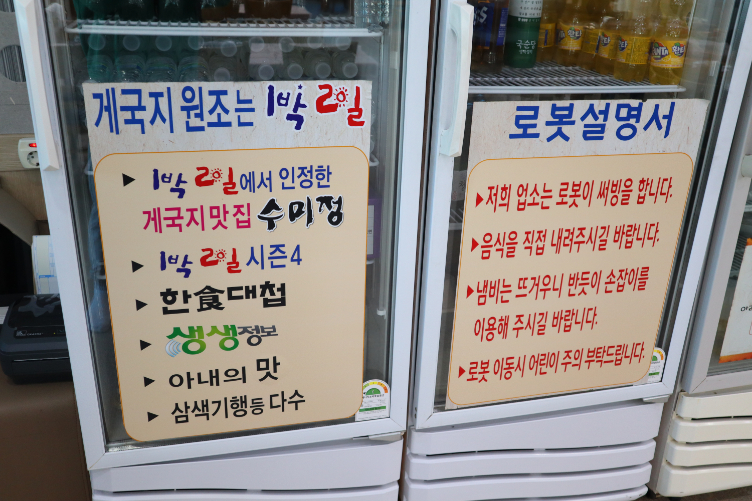 게국지 원조는 1박 2일
▶ 1박 2일에서 인정한
게국지맛집 수미정
▶ 1박 2일 시즌4
▶ 한食대첩
▶ 생생정보
▶ 아내의 맛
▶ 삼색기행등 다수
로봇설명서
▶저희 업소는 로봇이 써빙을 합니다.
▶음식을 직접 내려주시길 바랍니다.
▶냄비는 뜨거우니 반듯이 손잡이를
이용해 주시길 바랍니다.
▶로봇 이동시 어린이 주의 부탁드립니다.